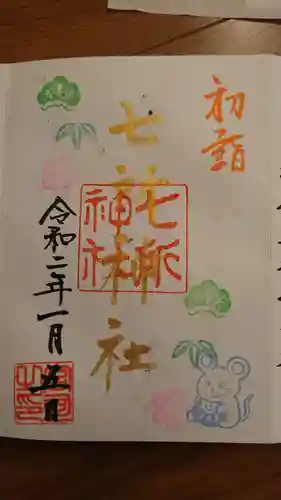 初詣
七所神社
七所神社
令和二年一月五日